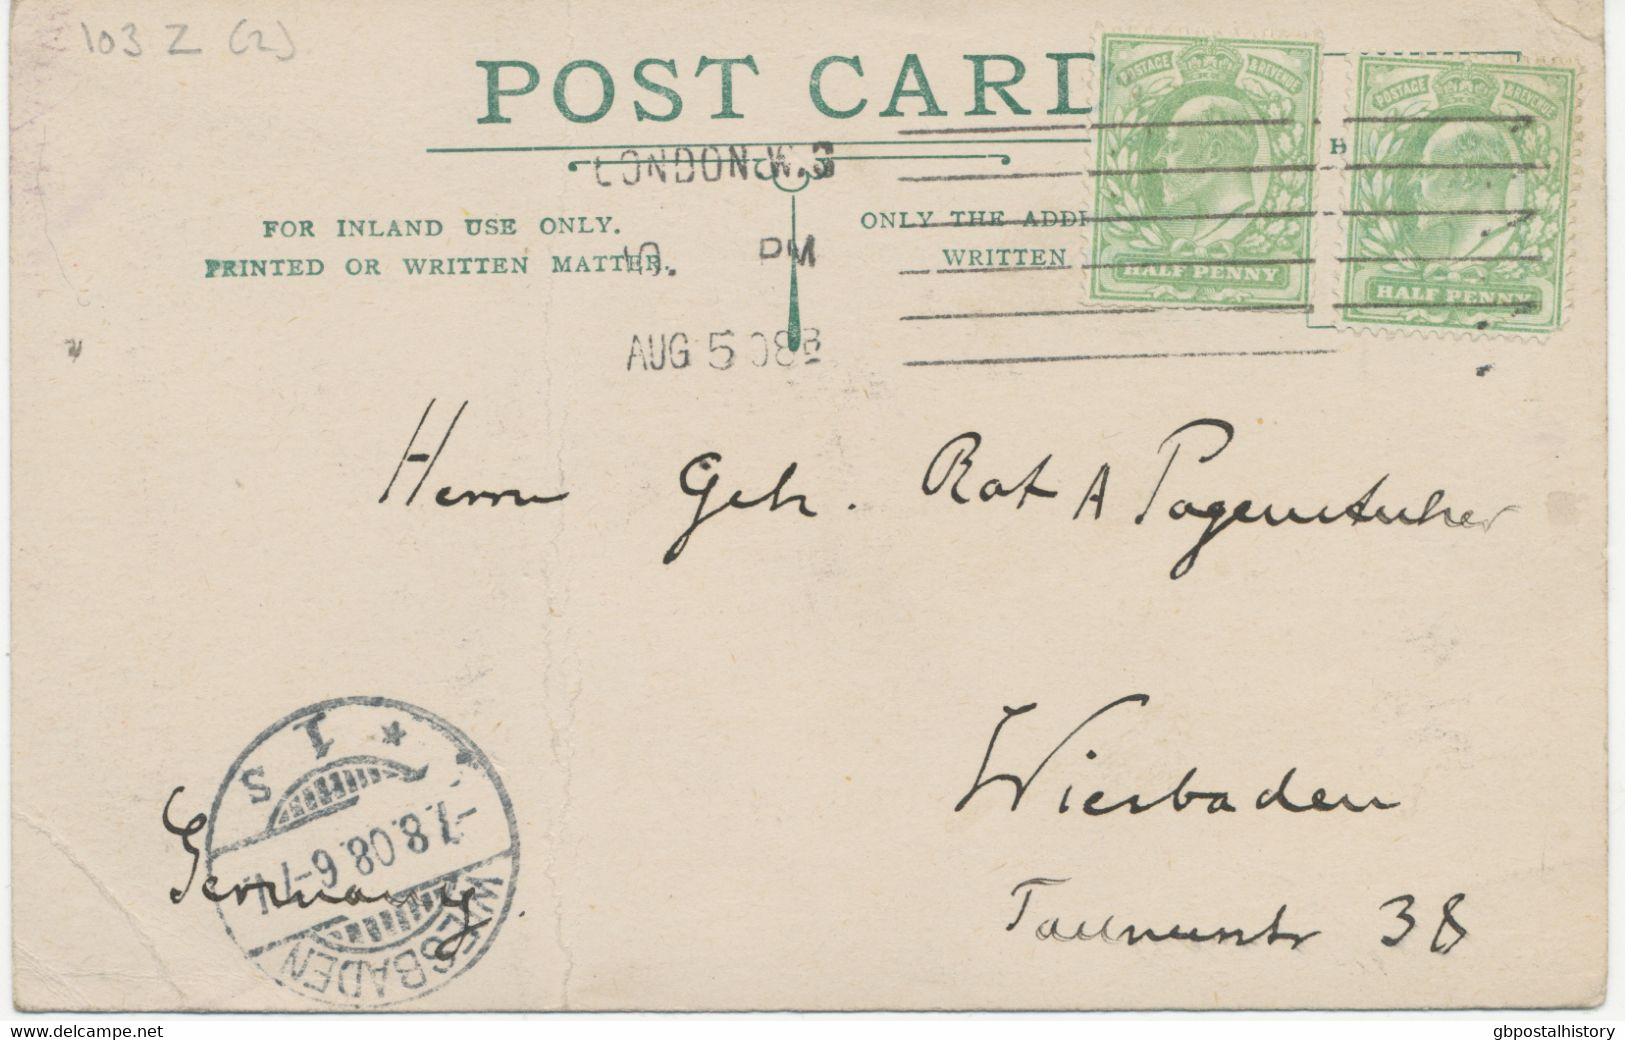 103 Z (2)
POST CARD
POSTAGE & REVENUE
HALF PENNY
POSTAGE & REVENUE
HALF PENNY
LONDON.W.
PM
AUG 5 08
FOR INLAND USE ONLY.
PRINTED OR WRITTEN MATTER.
ONLY THE ADD
WRITTEN
H
Herrn Geh. Rat A Pagenstecher
Wiesbaden
Taunusstr 38
Germany.
WIESBADEN
-7.8.08.6-7
* 1 s
delcampe.net
gbpostalhistory